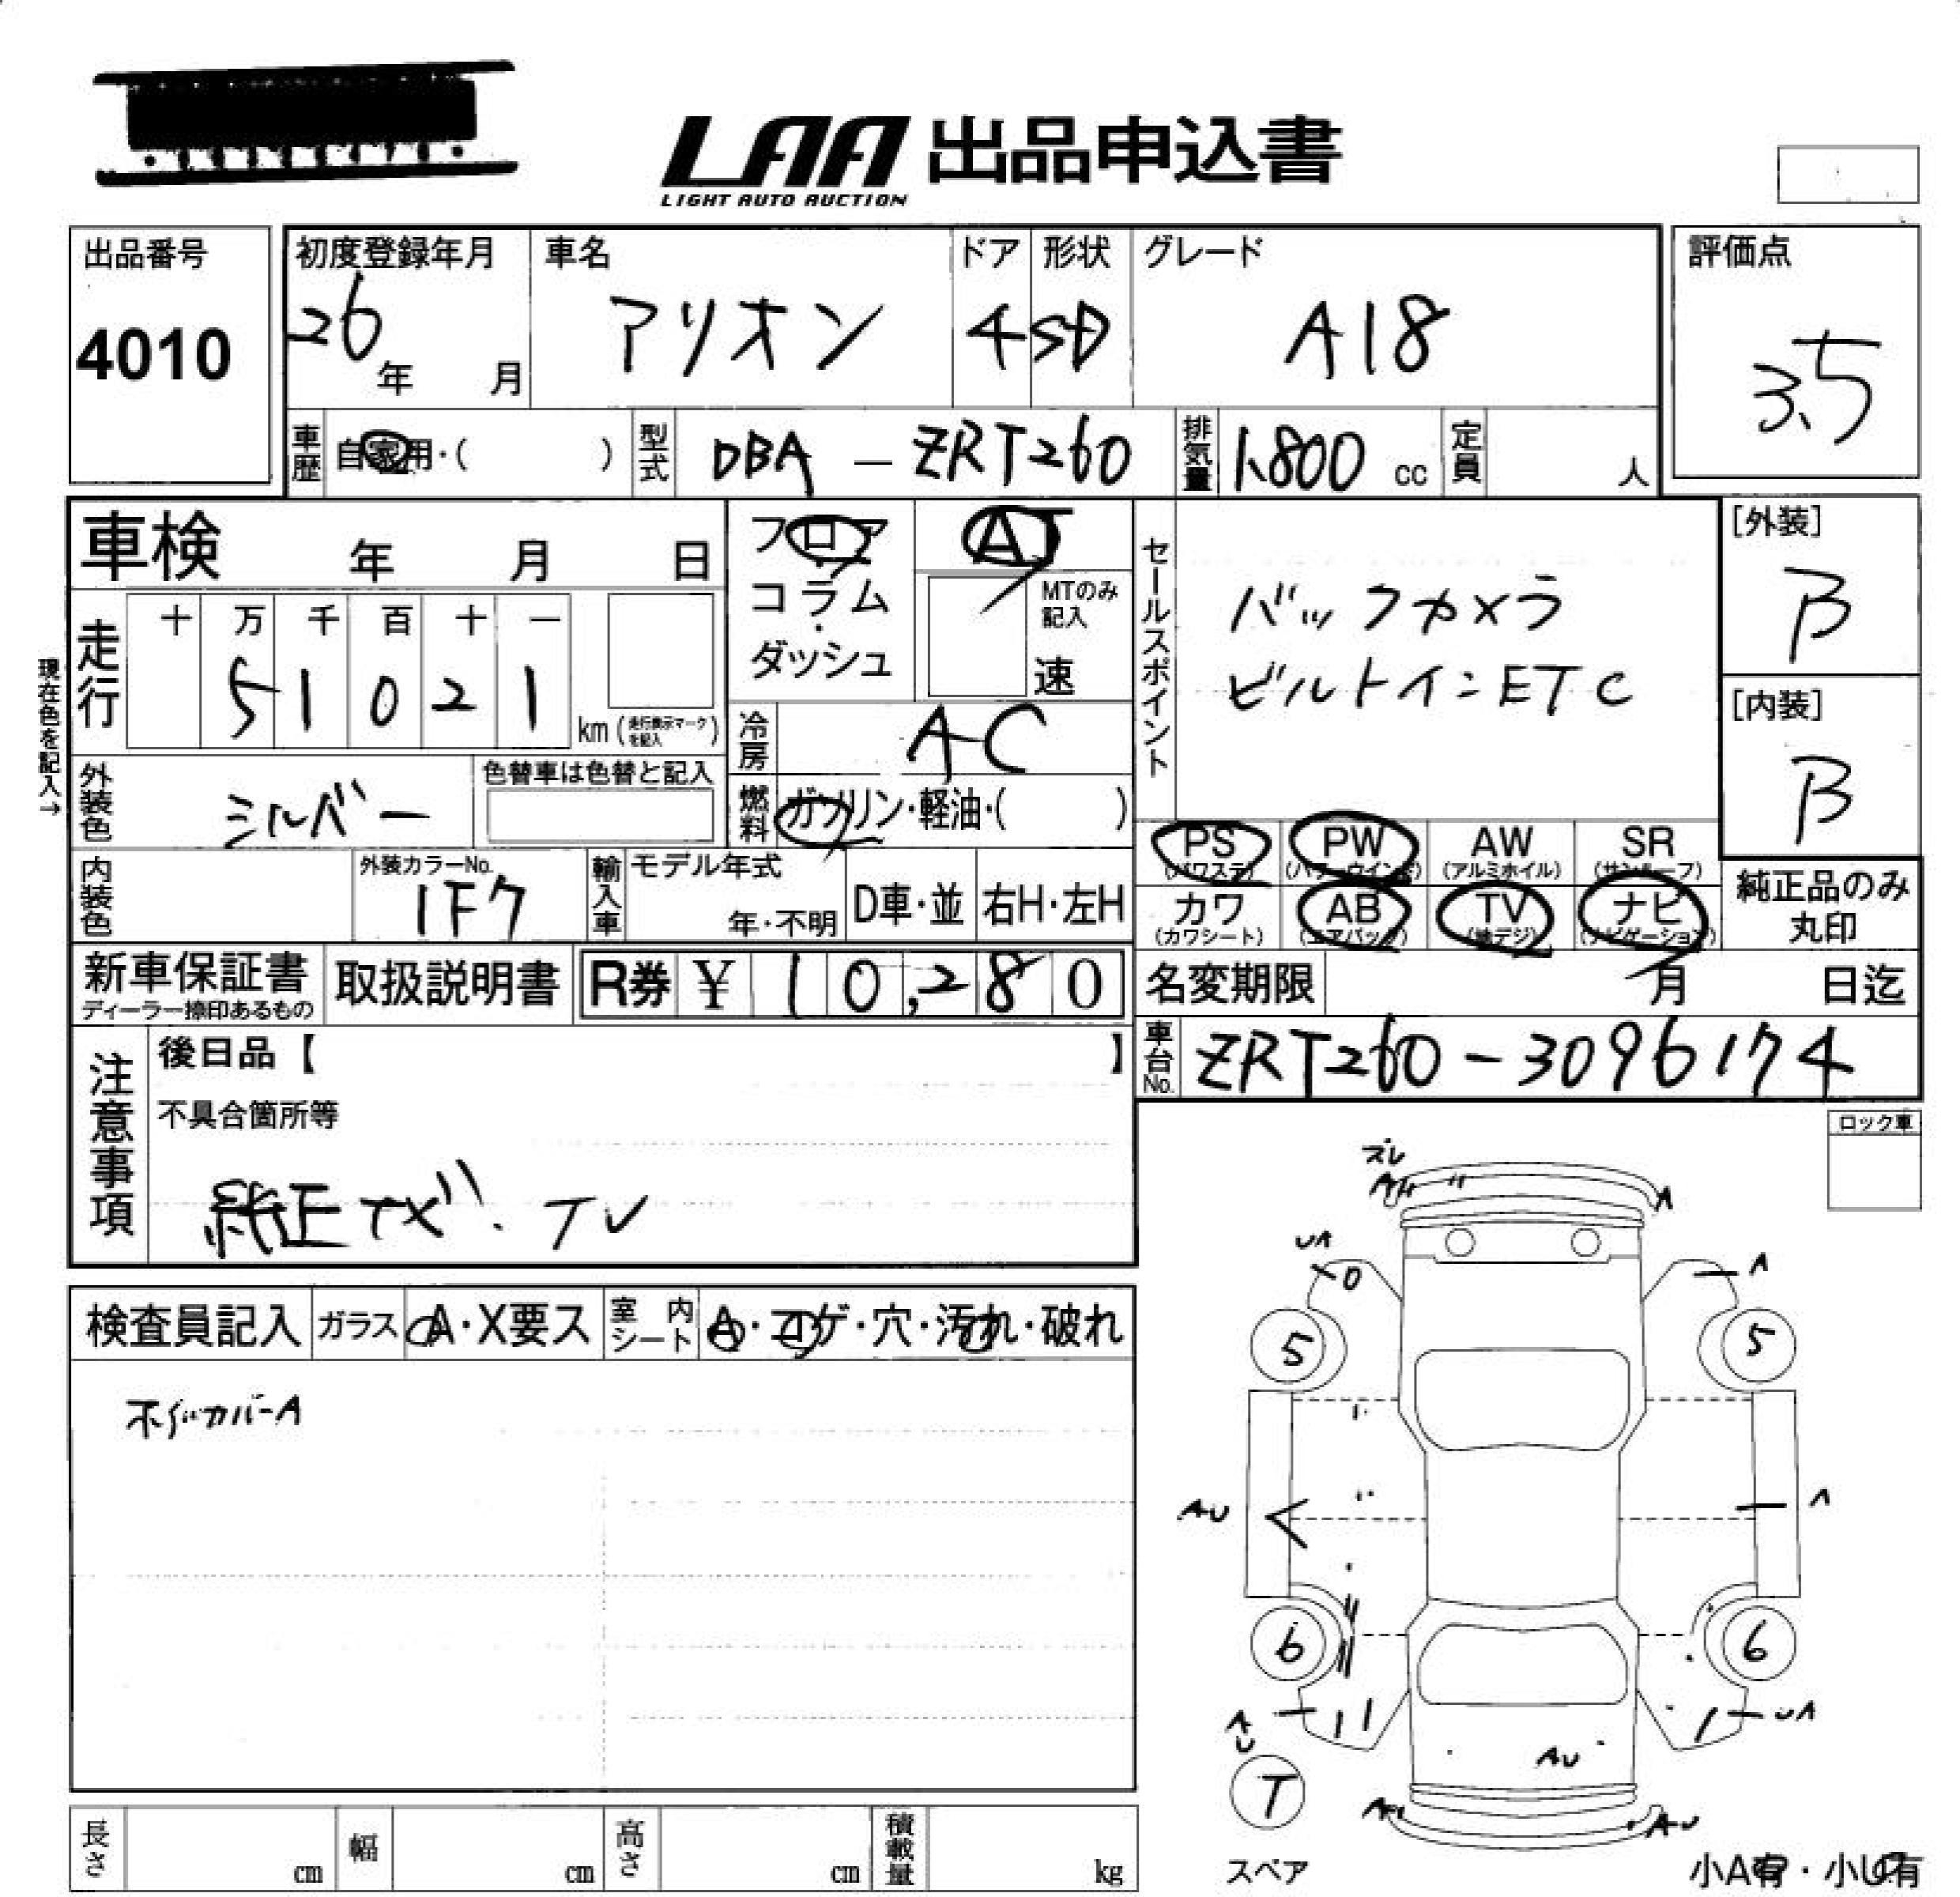 LAA 出品申込書
LIGHT AUTO AUCTION
出品番号
4010
初度登録年月
26年 月
車名
アリオン
ドア
4
形状
SD
グレード
A18
評価点
3.5
車歴 自家用・( )
型式 DBA - ZRT260
排気量 1,800 cc
定員 人
車検 年 月 日
フロア
コラム
・
ダッシュ
AT
MTのみ記入
速
セールスポイント
バックカメラ
ビルトインETC
[外装]
B
[内装]
B
現在色を記入→
走行
十 万 千 百 十 一
5 1 0 2 1
km (走行表示マークを記入)
冷房 AC
外装色 シルバー
色替車は色替と記入
燃料 ガソリン・軽油・( )
PS (パワステ)
PW (パワーウインド)
AW (アルミホイル)
SR (サンルーフ)
カワ (カワシート)
AB (エアバッグ)
TV (地デジ)
ナビ (ナビゲーション)
純正品のみ
丸印
内装色
外装カラーNo.
1F7
輸入車
モデル年式
年・不明
D車・並
右H・左H
新車保証書
ディーラー捺印あるもの
取扱説明書
R券 ¥ 10,280
名変期限 月 日迄
車台No. ZRT260-3096174
注意事項
後日品【 】
不具合箇所等
純正ナビ・TV
ロック車
検査員記入
ガラス
A・X要ス
室内シート
A・コゲ・穴・汚れ・破れ
ズレ
A
UA
A
5
5
AU
A
6
6
AU
UA
T
AU
AU
スペア
小A有・小U有
長さ cm
幅 cm
高さ cm
積載量 kg